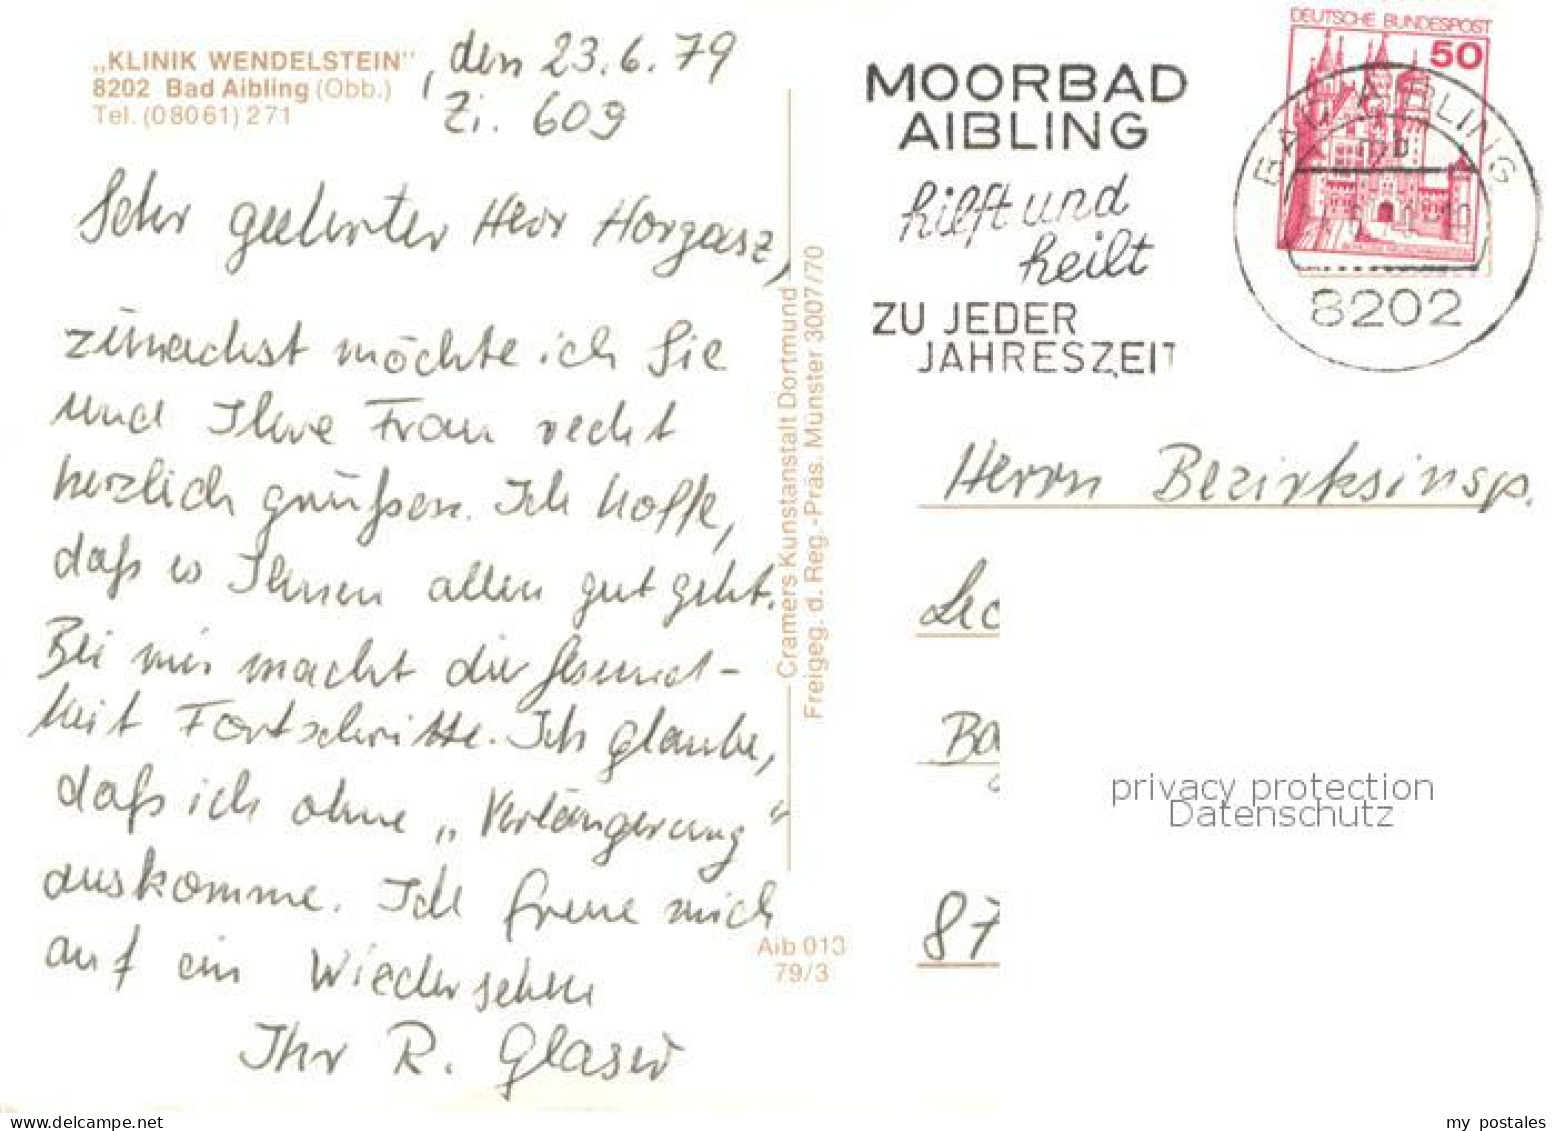 „KLINIK WENDELSTEIN"
8202 Bad Aibling (Obb.)
Tel. (08061) 271
, den 23.6.79
Zi. 609
Sehr geehrter Herr Horgasz,
zunächst möchte ich Sie
und Ihre Frau recht
herzlich grüßen. Ich hoffe,
daß es Ihnen allen gut geht.
Bei mir macht die Gesund-
heit Fortschritte. Ich glaube,
daß ich ohne „Verlängerung"
auskomme. Ich freue mich
auf ein Wiedersehen
Ihr R. Glaser
Cramers Kunstanstalt Dortmund
Freigeg. d. Reg.-Präs. Münster 3007/70
Aib 013
79/3
MOORBAD
AIBLING
hilft und
heilt
ZU JEDER
JAHRESZEIT
DEUTSCHE BUNDESPOST
50
BAD AIBLING
8202
Herrn Bezirksinsp.
Lec
Ba
87
privacy protection
Datenschutz
my postales